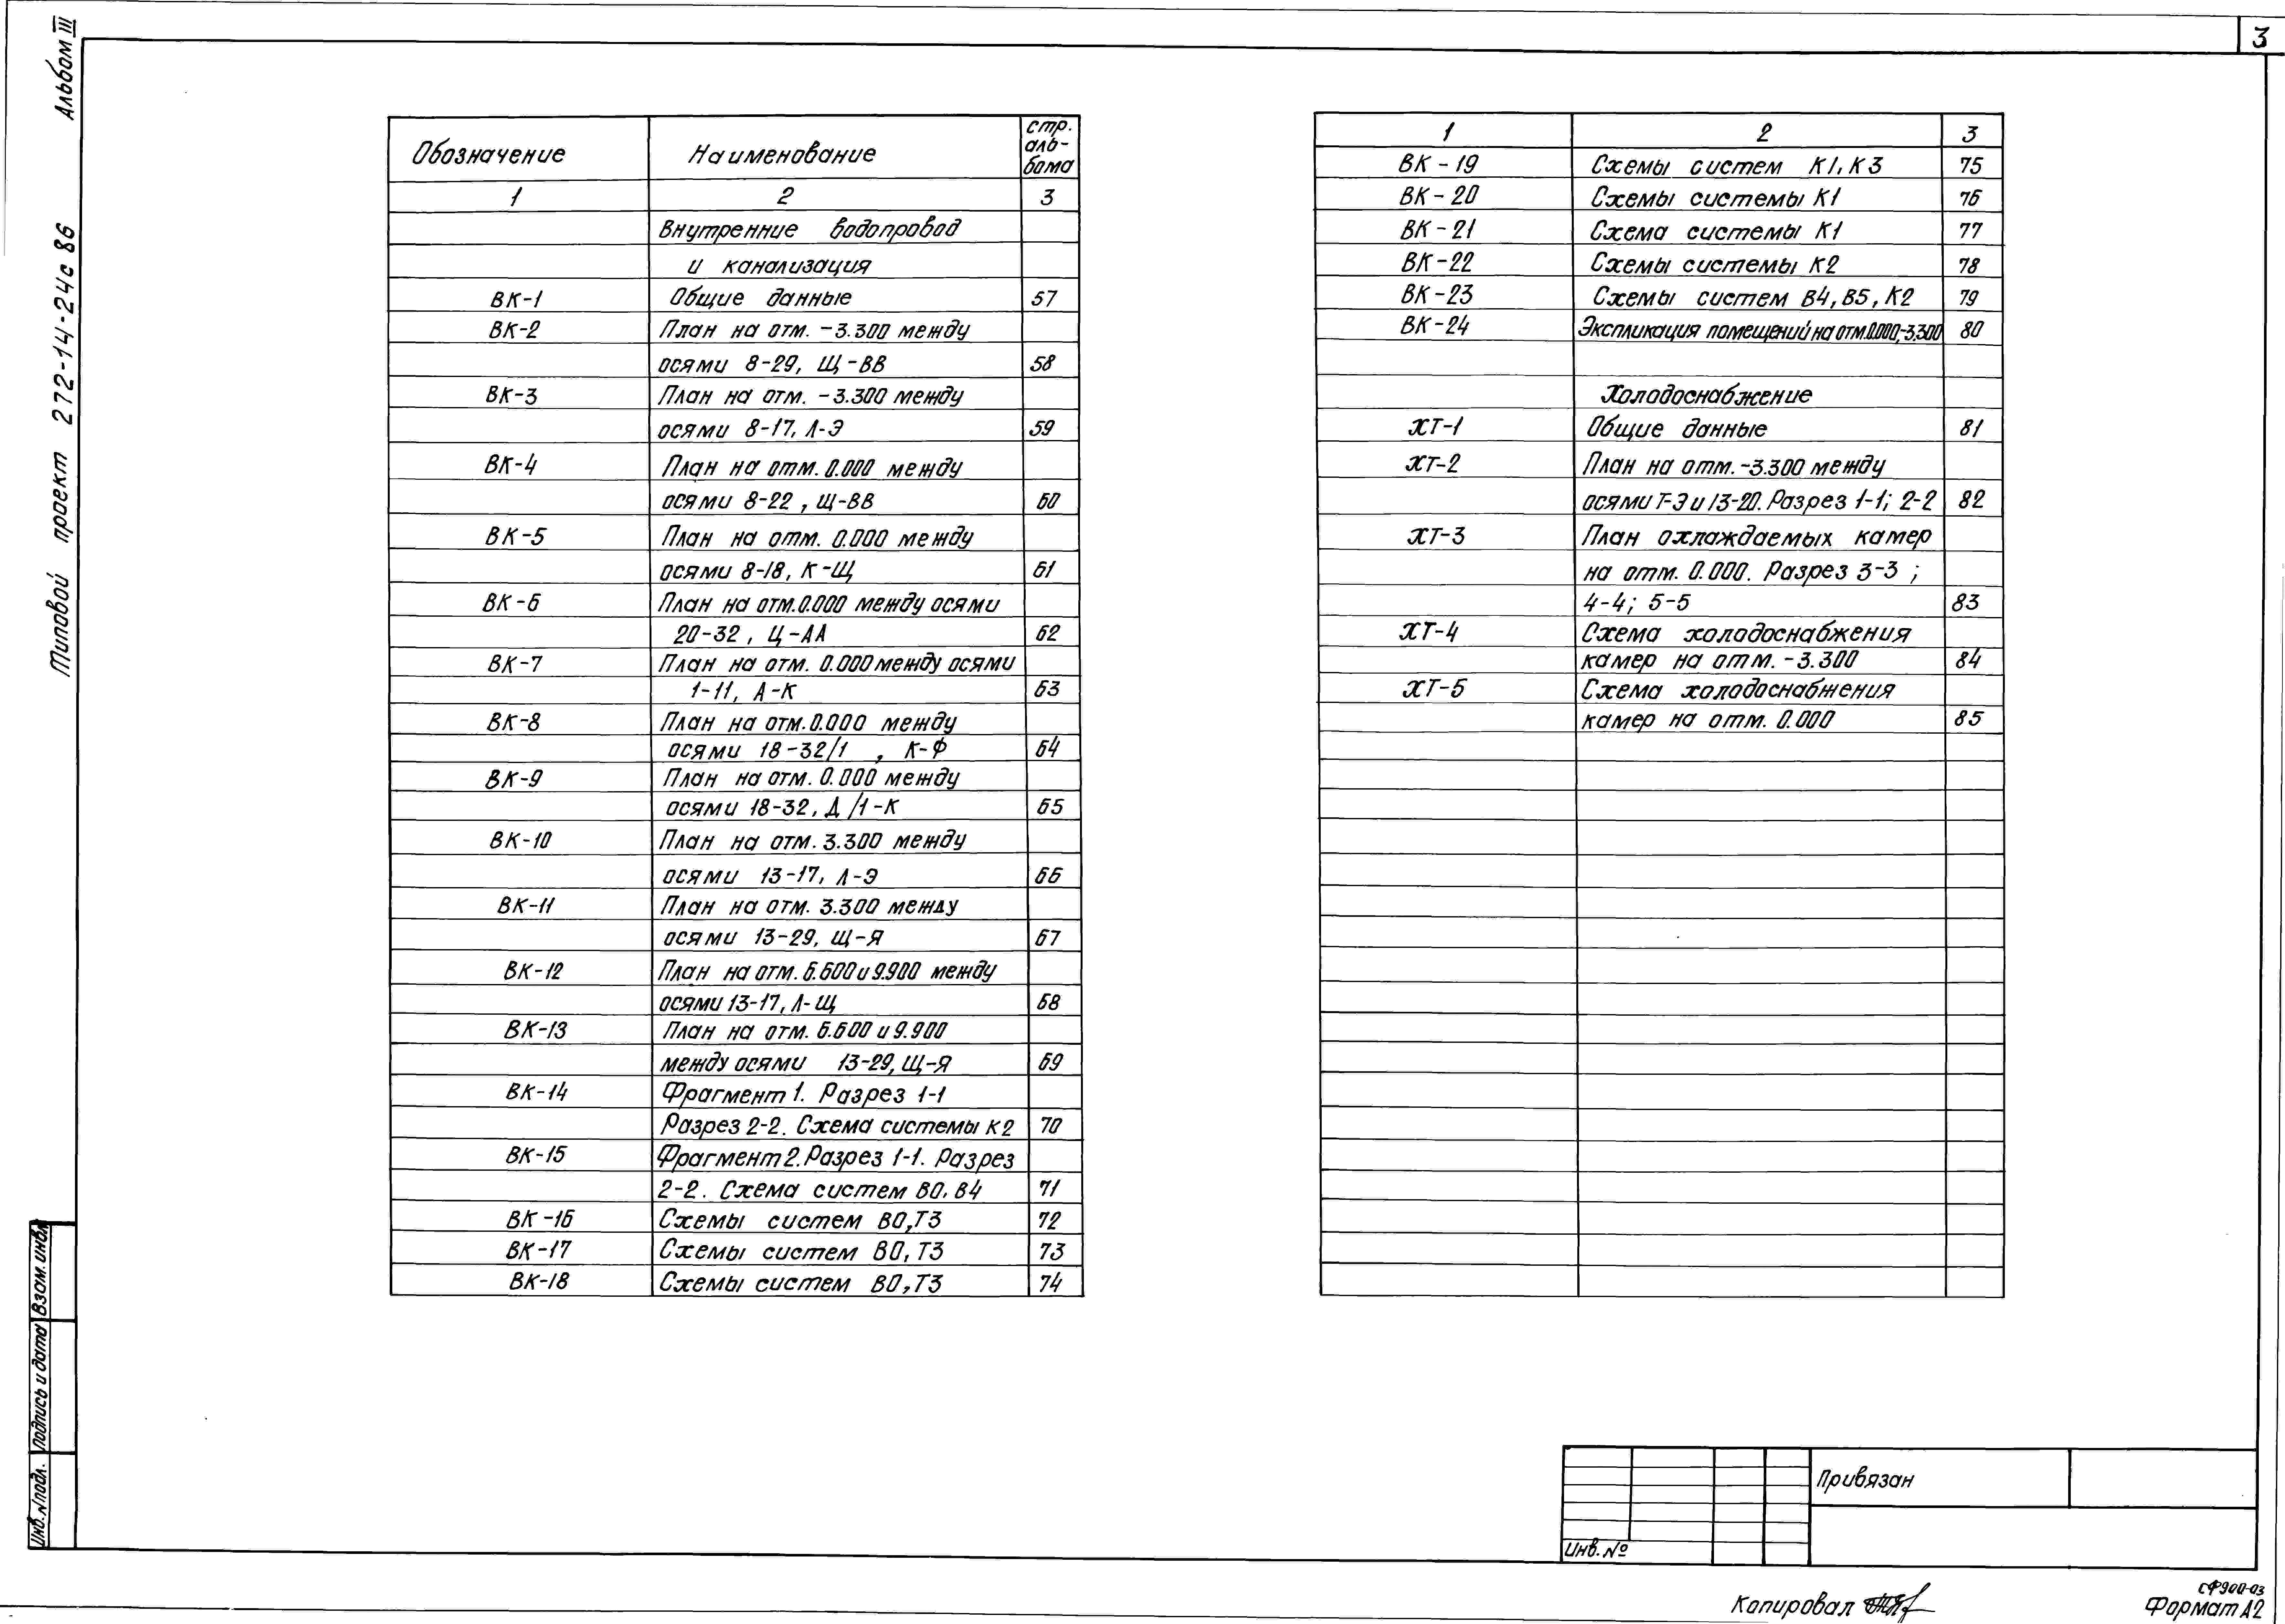 3
Альбом III
Типовой проект 272-14-24с 86
Обозначение Наименование стр. аль- бома
1 2 3
Внутренние водопровод
и канализация
ВК-1 Общие данные 57
ВК-2 План на отм. -3.300 между
осями 8-29, Щ-ВВ 58
ВК-3 План на отм. -3.300 между
осями 8-17, Л-Э 59
ВК-4 План на отм. 0.000 между
осями 8-22, Щ-ВВ 60
ВК-5 План на отм. 0.000 между
осями 8-18, К-Щ 61
ВК-6 План на отм. 0.000 между осями
20-32, Ц-АА 62
ВК-7 План на отм. 0.000 между осями
1-11, А-К 63
ВК-8 План на отм. 0.000 между
осями 18-32/1 , К-Ф 64
ВК-9 План на отм. 0.000 между
осями 18-32, Д/1-К 65
ВК-10 План на отм. 3.300 между
осями 13-17, Л-Э 66
ВК-11 План на отм. 3.300 между
осями 13-29, Щ-Я 67
ВК-12 План на отм. 6.600 и 9.900 между
осями 13-17, Л-Щ 68
ВК-13 План на отм. 6.600 и 9.900
между осями 13-29, Щ-Я 69
ВК-14 Фрагмент 1. Разрез 1-1
Разрез 2-2. Схема системы К2 70
ВК-15 Фрагмент 2. Разрез 1-1. Разрез
2-2. Схема систем В0, В4 71
ВК-16 Схемы систем В0, Т3 72
ВК-17 Схемы систем В0, Т3 73
ВК-18 Схемы систем В0, Т3 74
1 2 3
ВК-19 Схемы систем К1, К3 75
ВК-20 Схемы системы К1 76
ВК-21 Схема системы К1 77
ВК-22 Схемы системы К2 78
ВК-23 Схемы систем В4, В5, К2 79
ВК-24 Экспликация помещений на отм. 0.000; -3.300 80
Холодоснабжение
ХТ-1 Общие данные 81
ХТ-2 План на отм. -3.300 между
осями Т-Э и 13-20. Разрез 1-1; 2-2 82
ХТ-3 План охлаждаемых камер
на отм. 0.000. Разрез 3-3 ;
4-4; 5-5 83
ХТ-4 Схема холодоснабжения
камер на отм. -3.300 84
ХТ-5 Схема холодоснабжения
камер на отм. 0.000 85
Взам. инв.
Подпись и дата
Инв. № подл.
Привязан
Инв. №
Копировал
СФ900-03
Формат А2